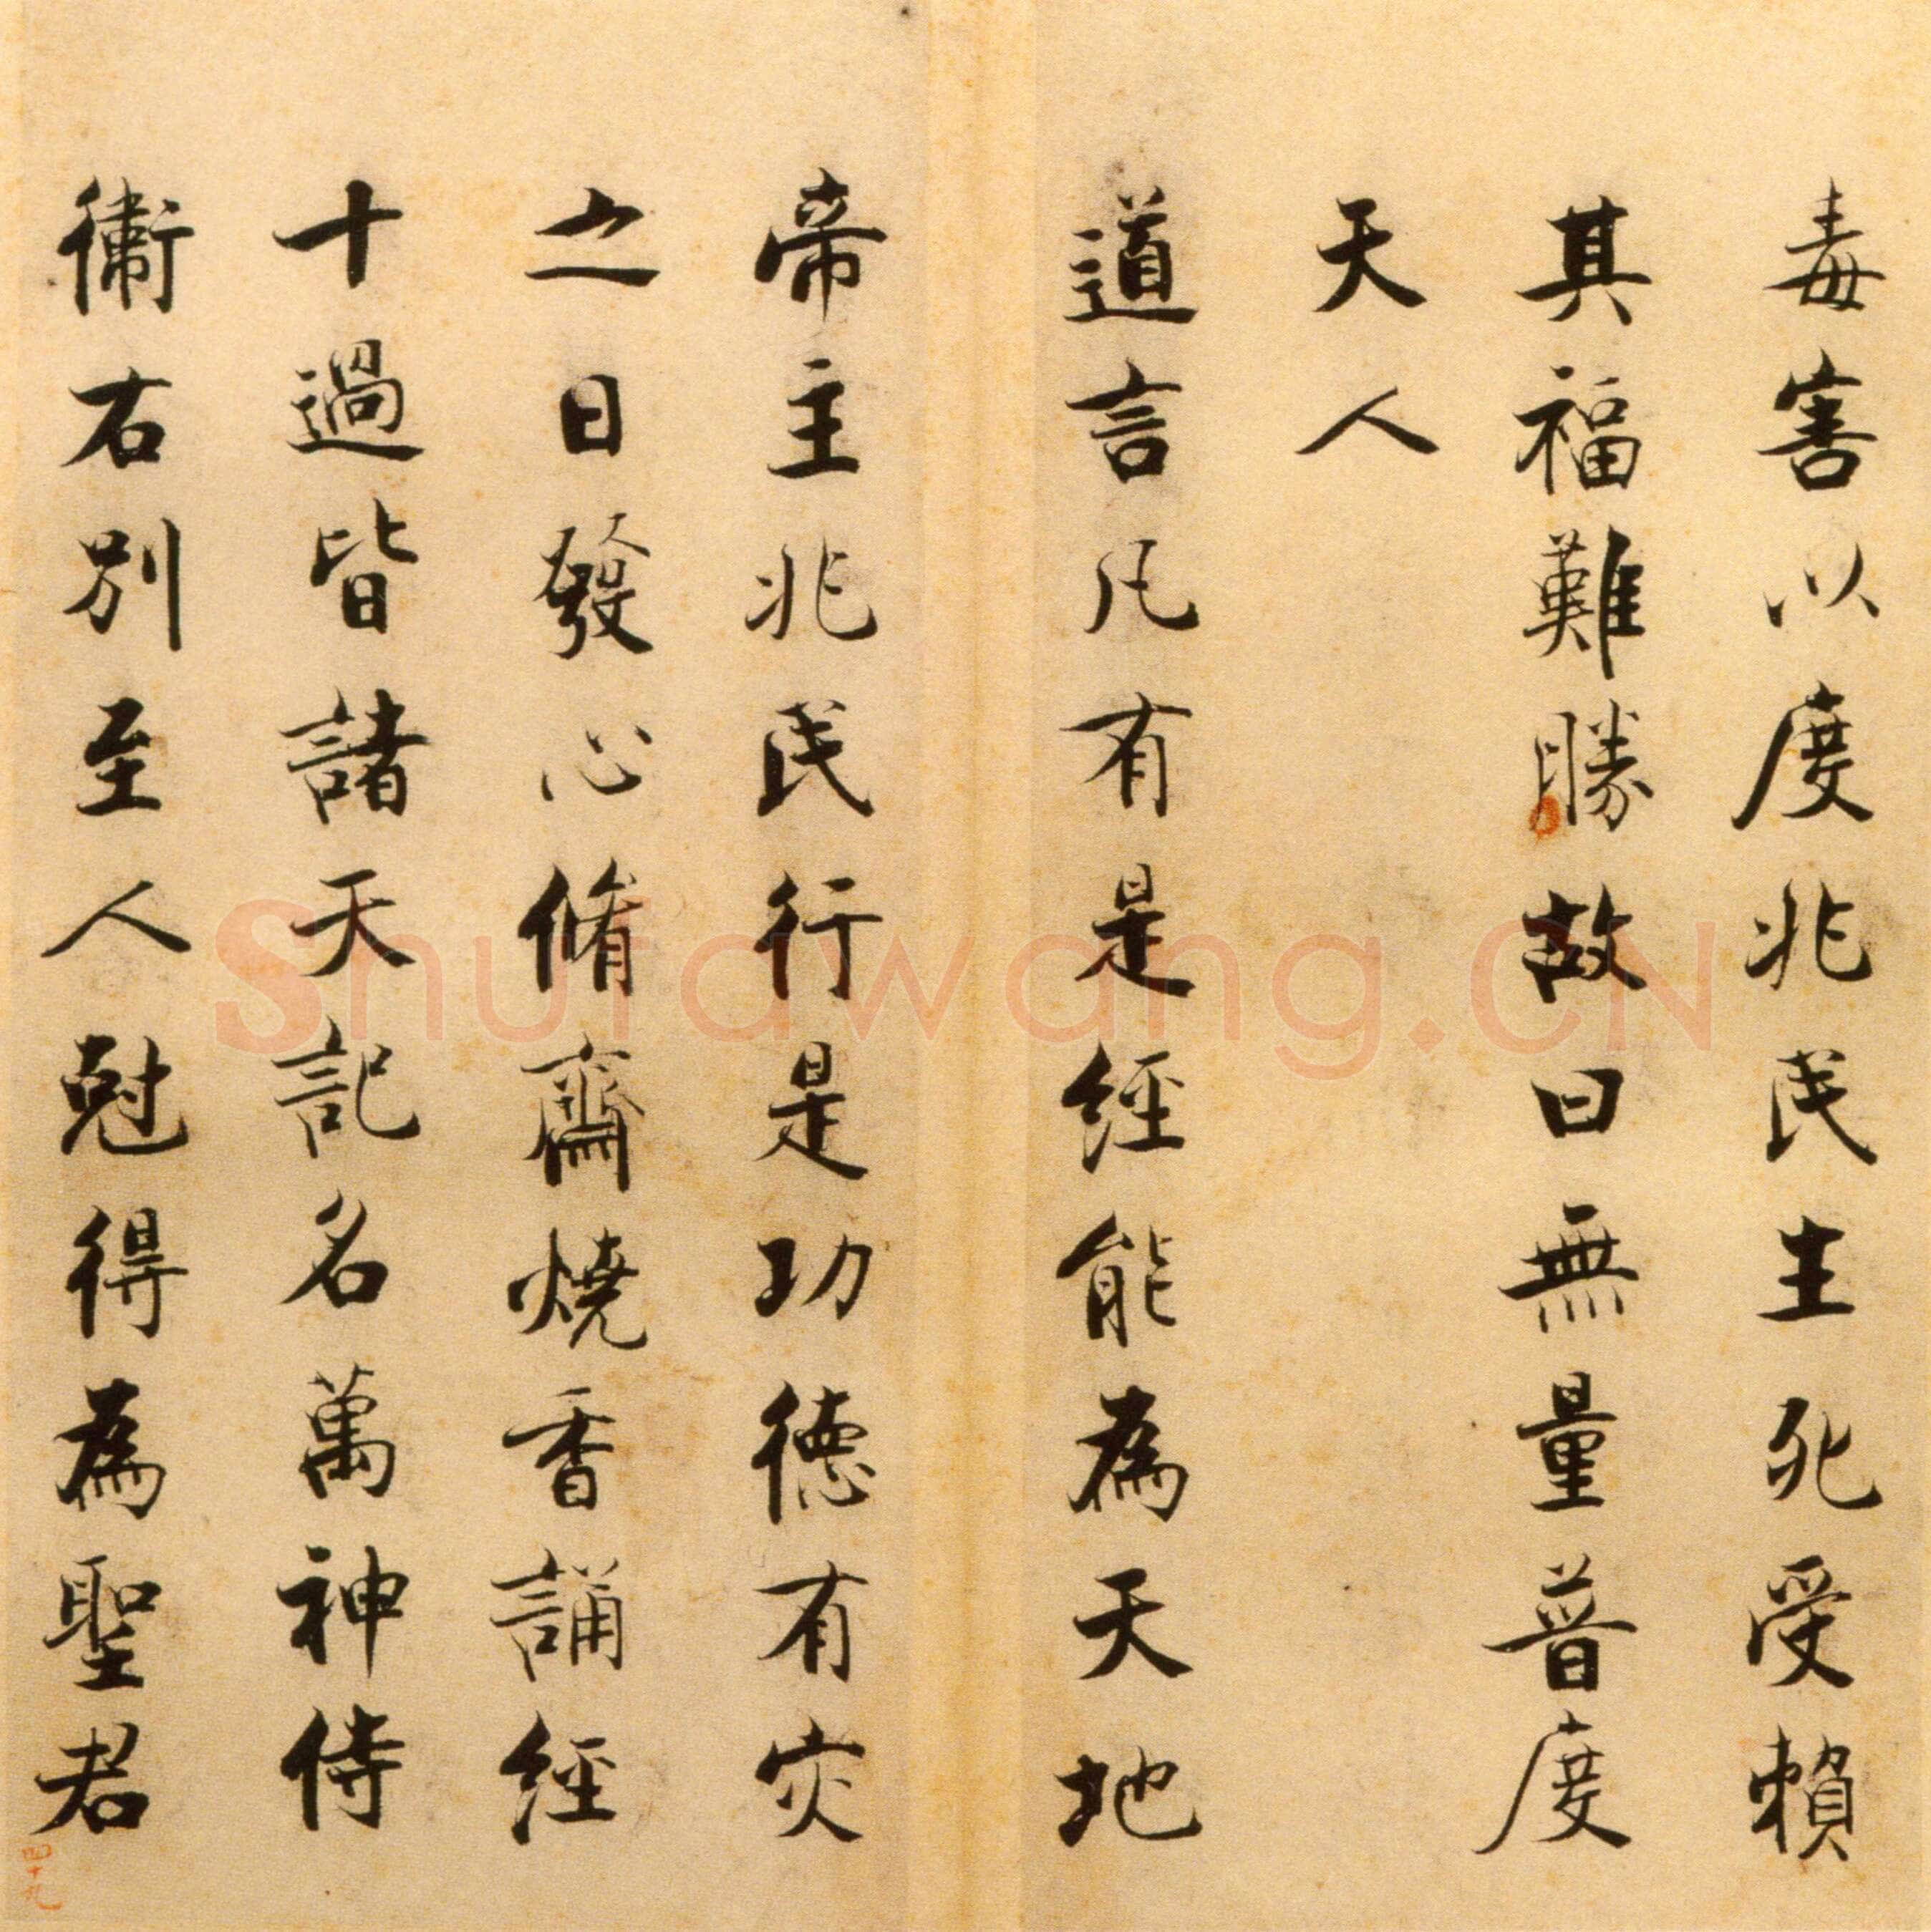 毒害以度兆民生死受賴
其福難勝故曰無量普度
天人
道言凡有是經能為天地
帝主兆民行是功德有灾
之日發心脩齋燒香誦經
十過皆諸天記名萬神侍
衞右別至人尅得為聖君
四十九
Shufawang.CN